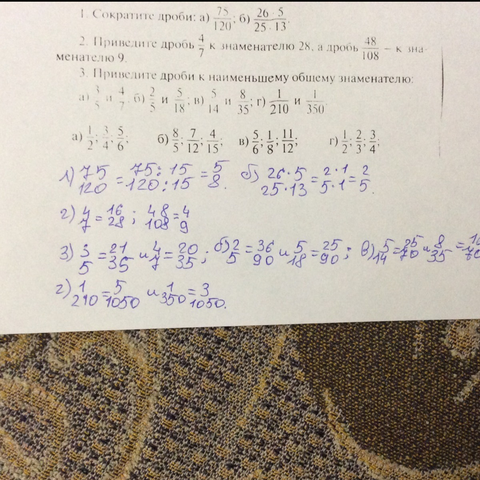 1. Сократите дроби: а) 75/120; б) 26 · 5/25 · 13.
2. Приведите дробь 4/7 к знаменателю 28, а дробь 48/108 – к зна-
менателю 9.
3. Приведите дроби к наименьшему общему знаменателю:
а) 3/5 и 4/7. б) 2/5 и 5/18; в) 5/14 и 8/35; г) 1/210 и 1/350.
а) 1/2; 3/4; 5/6; б) 8/5; 7/12; 4/15; в) 5/6; 1/8; 11/12; г) 1/2; 2/3; 3/4.
1) 75/120 = 75:15/120:15 = 5/8. б) 26·5/25·13 = 2·1/5·1 = 2/5.
2) 4/7 = 16/28; 48/108 = 4/9
3) 3/5 = 21/35 и 4/7 = 20/35; б) 2/5 = 36/90 и 5/18 = 25/90; в) 5/14 = 25/70 и 8/35 = 16/70
г) 1/210 = 5/1050 и 1/350 = 3/1050.